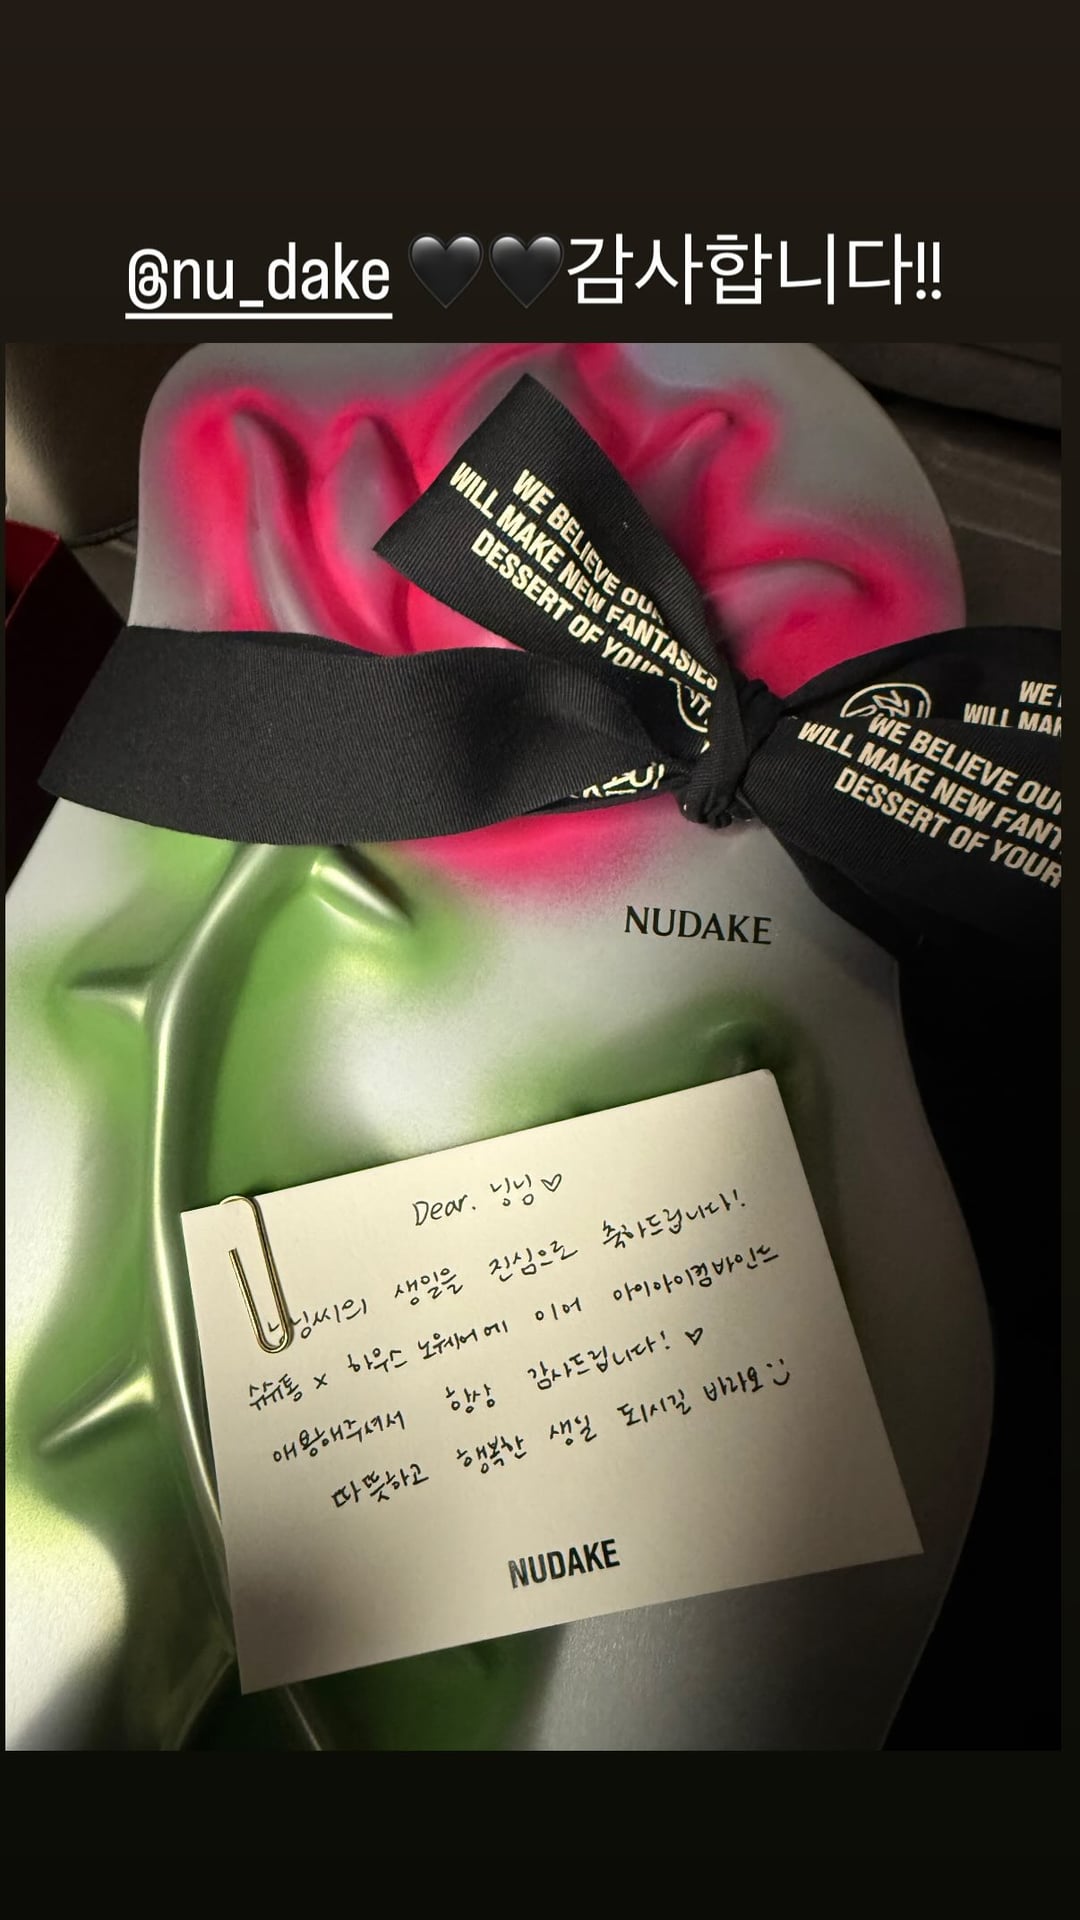 @nu_dake 🖤🖤감사합니다!!
WE BELIEVE OUR
WILL MAKE NEW FANTASIES
DESSERT OF YOUR
WE
WILL MAK
WE BELIEVE OU
WILL MAKE NEW FANT
DESSERT OF YOUR
NUDAKE
Dear. 닝닝♡
닝닝씨의 생일을 진심으로 축하드립니다!
슈슈통 x 하우스 노웨어에 이어 아이아이컴바인드
애용해주셔서 항상 감사드립니다! ♡
따뜻하고 행복한 생일 되시길 바라요 :)
NUDAKE